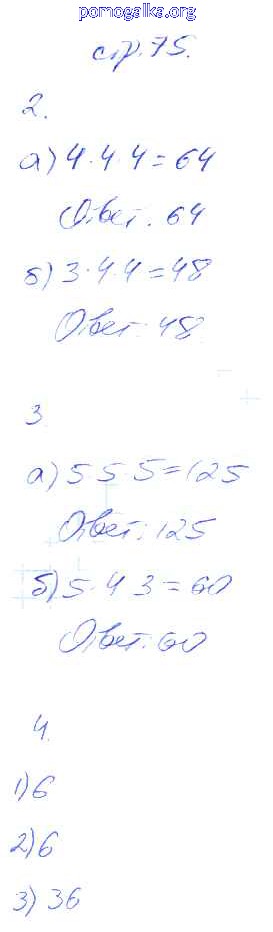 pomogalka.org
стр. 75.
2.
а) 4·4·4=64
Ответ: 64
б) 3·4·4=48
Ответ: 48
3.
а) 5·5·5=125
Ответ: 125
б) 5·4·3=60
Ответ: 60
4.
1) 6
2) 6
3) 36